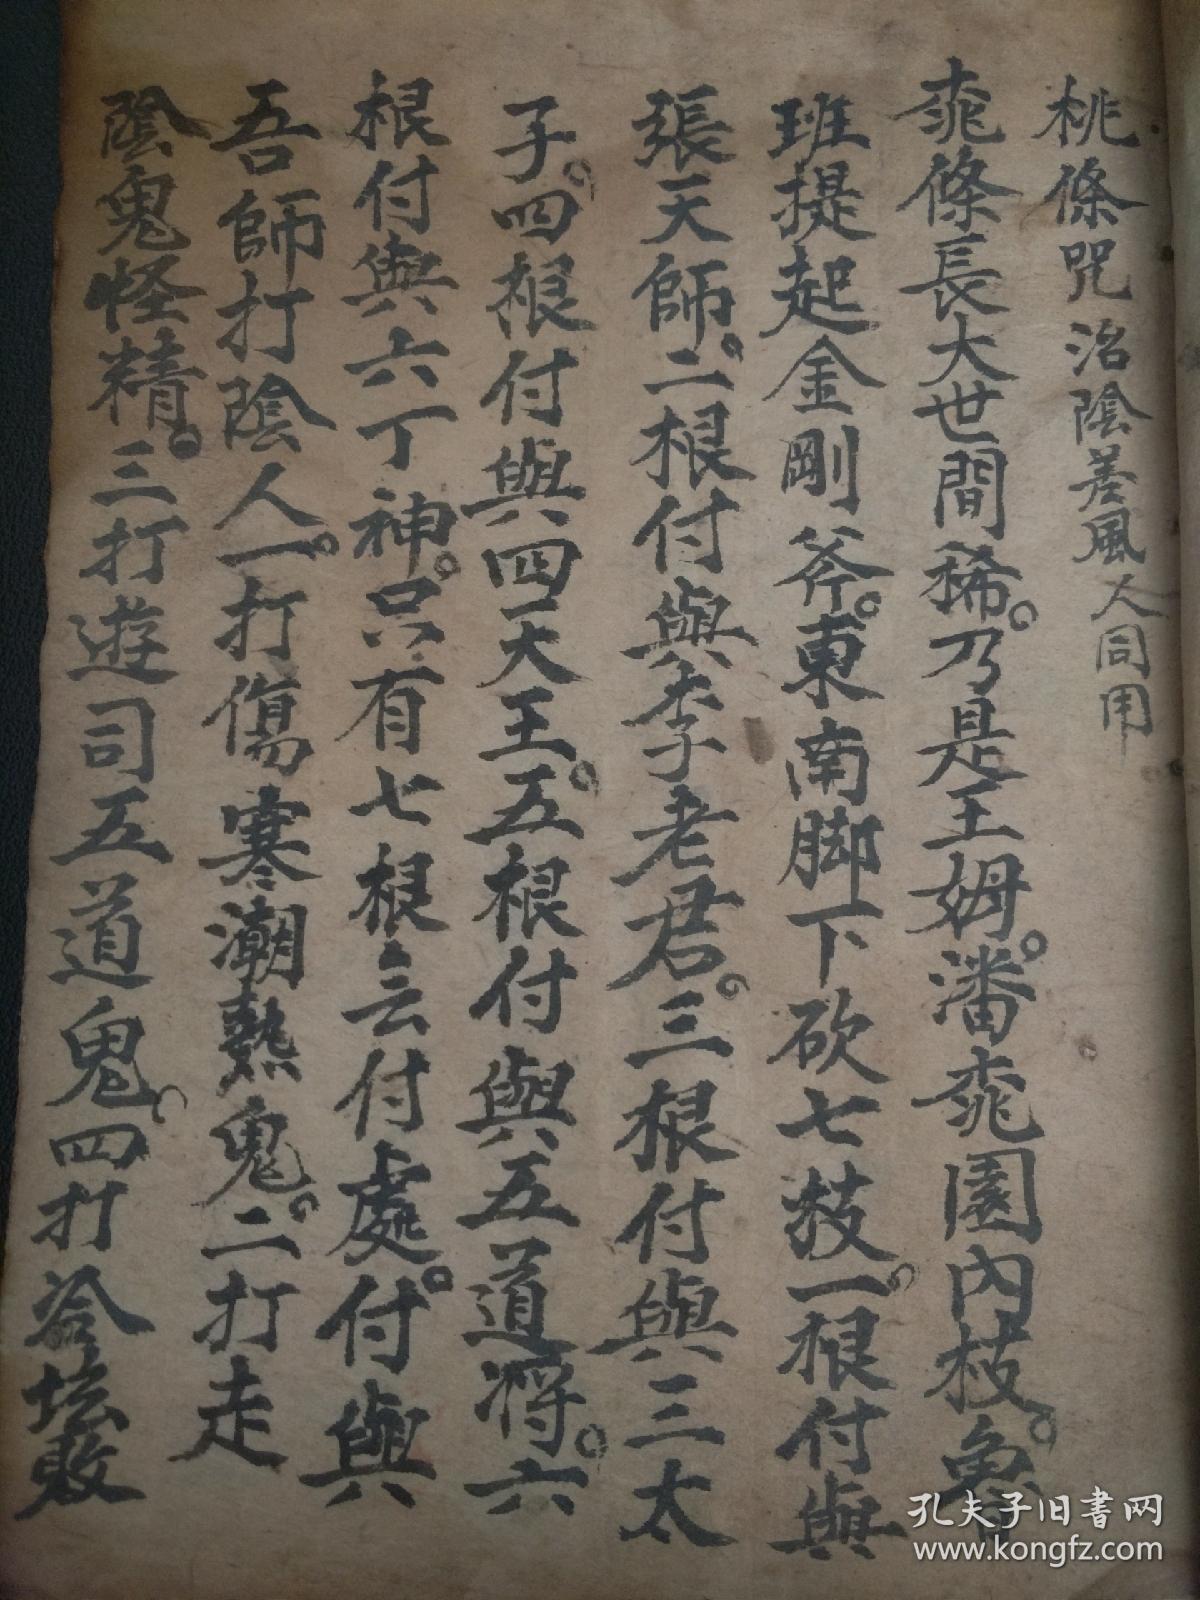 桃條咒 治陰差風人同用
桃條長大世間稀。乃是王姆潘桃園內枝。魯
班提起金剛斧。東南脚下砍七枝。一根付與
張天師。二根付與李老君。三根付與三太
子。四根付與四天王。五根付與五道將。六
根付與六丁神。只有七根去付處。付與
吾師打陰人。一打傷寒潮熱鬼。二打走
陰鬼怪精。三打遊司五道鬼。四打 坛敗
孔夫子旧书网
www.kongfz.com